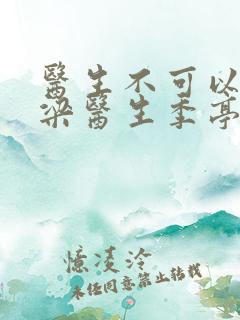 醫生不可以
梁醫生季亭
憶凌泠
未经同意禁止转载